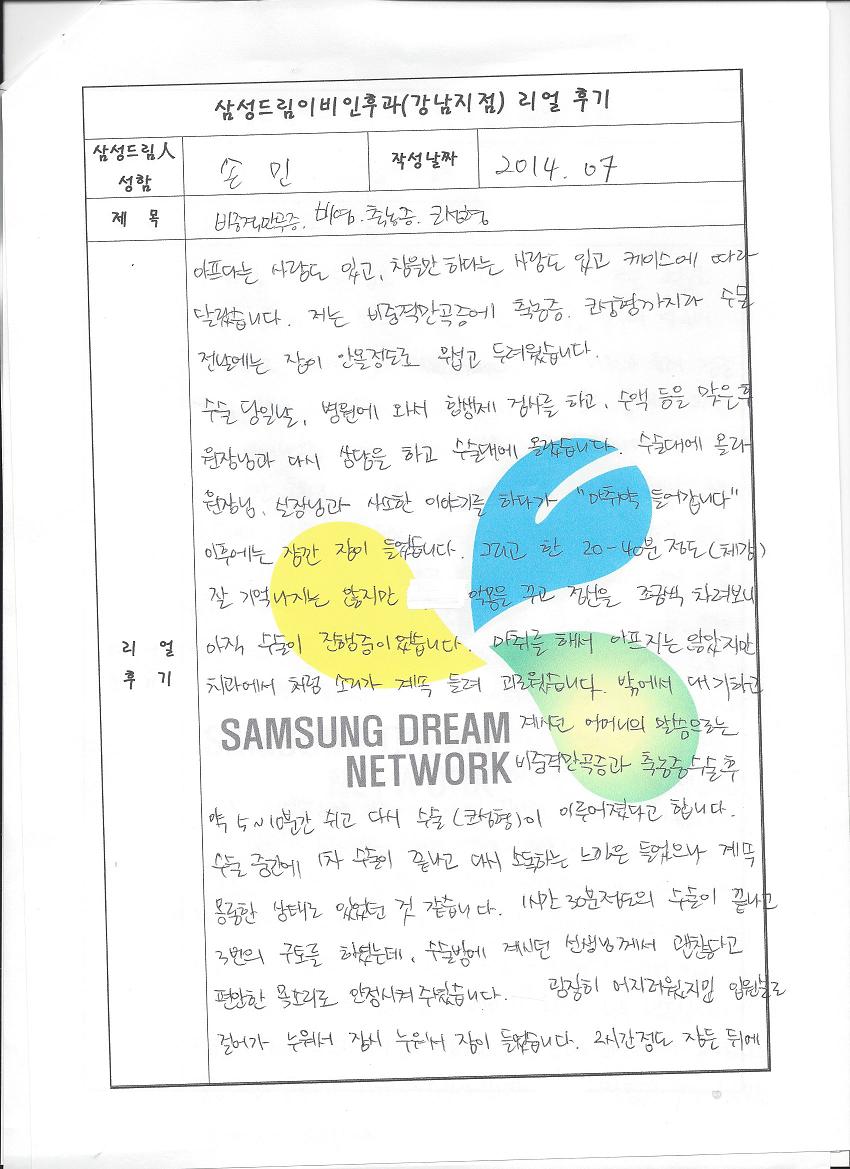 삼성드림이비인후과(강남지점) 리얼 후기
삼성드림人
성함
손 민
작성날짜
2014. 07
제 목
비중격만곡증. 비염. 축농증. 코성형
아프다는 사람도 있고, 참을만 하다는 사람도 있고 케이스에 따라
달랐습니다. 저는 비중격만곡증에 축농증. 코성형까지라 수술
전날에는 잠이 안올정도로 무섭고 두려웠습니다.
수술 당일날, 병원에 와서 항생제 검사를 하고, 수액 등을 맞은후
원장님과 다시 상담을 하고 수술대에 올랐습니다. 수술대에 올라
원장님, 실장님과 사소한 이야기를 하다가 "마취약 들어갑니다"
이후에는 잠깐 잠이 들었습니다. 그리고 한 20-40분 정도(체감)
잘 기억나지는 않지만 악몽을 꾸고 정신을 조금씩 차려보니
아직 수술이 진행중이었습니다. 마취를 해서 아프지는 않았지만
치과에서 처럼 소리가 계속 들려 괴로웠습니다. 밖에서 대기하고
계시던 어머니의 말씀으로는
SAMSUNG DREAM
NETWORK
비중격만곡증과 축농증수술후
약 5~10분간 쉬고 다시 수술(코성형)이 이루어졌다고 합니다.
수술 중간에 1차 수술이 끝나고 다시 소독하는 느낌은 들었으나 계속
몽롱한 상태로 있었던 것 같습니다. 1시간 30분정도의 수술이 끝나고
3번의 구토를 하였는데, 수술방에 계시던 선생님께서 괜찮다고
편안한 목소리로 안정시켜 주셨습니다. 굉장히 어지러웠지만 입원실로
걸어가 누워서 잠시 누워서 잠이 들었습니다. 2시간정도 잠든 뒤에
리 얼
후 기